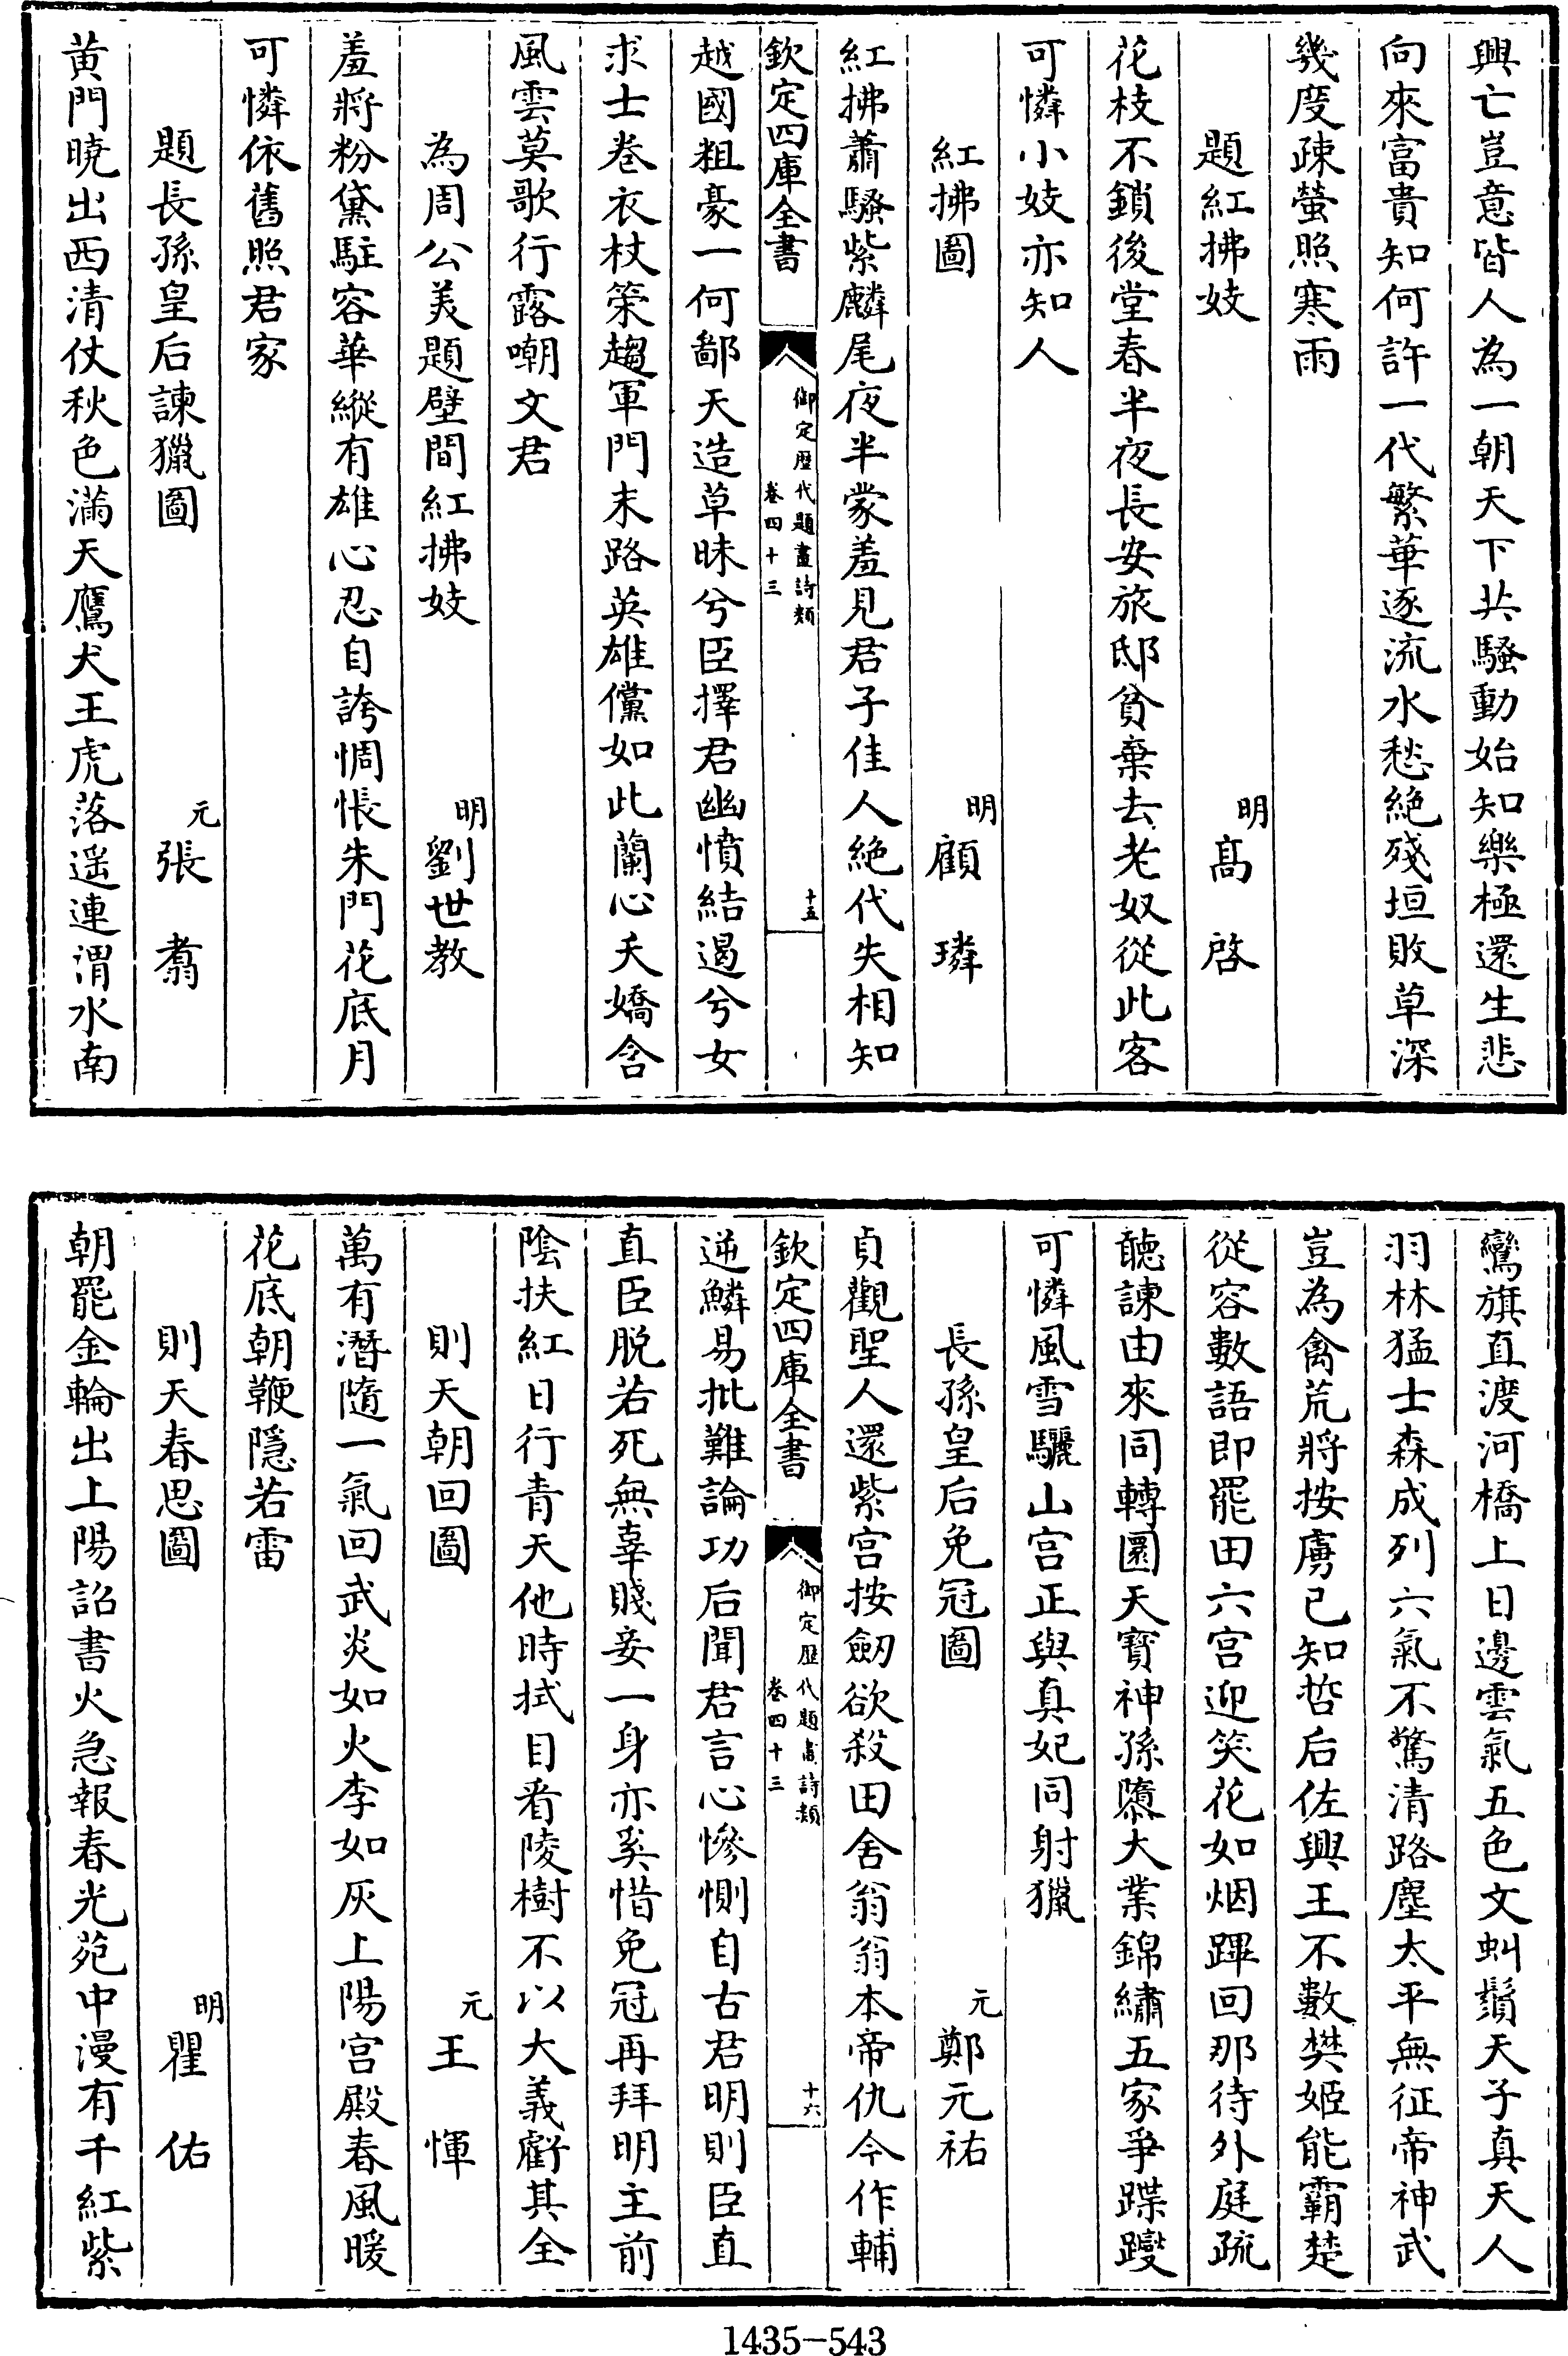 興亡豈意皆人為一朝天下共騷動始知樂極還生悲
向來富貴知何許一代繁華逐流水愁絶殘垣敗草深
幾度疎螢照寒雨
題紅拂妓
明
高啓
花枝不鎖後堂春半夜長安旅邸貧棄去老奴從此客
可憐小妓亦知人
紅拂圖
明
顧璘
紅拂蕭騷紫麟尾夜半蒙羞見君子佳人絶代失相知
欽定四庫全書
御定歴代題畫詩類
卷四十三
十五
越國粗豪一何鄙天造草昧兮臣擇君幽憤結遏兮女
求士卷衣杖策趨軍門末路英雄儻如此蘭心夭嬌含
風雲莫歌行露嘲文君
為周公美題壁間紅拂妓
明
劉世教
羞將粉黛駐容華縱有雄心忍自誇惆悵朱門花底月
可憐依舊照君家
題長孫皇后諫獵圖
元
張翥
黄門曉出西清仗秋色滿天鷹犬王虎落遥連渭水南
鸞旗直渡河橋上日邊雲氣五色文虬鬚天子真天人
羽林猛士森成列六氣不驚清路塵太平無征帝神武
豈為禽荒將按虜已知哲后佐興王不數樊姬能霸楚
從容數語即罷田六宫迎笑花如烟蹕回那待外庭疏
聽諫由來同轉圜天寶神孫隳大業錦繡五家爭蹀躞
可憐風雪驪山宫正與真妃同射獵
長孫皇后免冠圖
元
鄭元祐
貞觀聖人還紫宫按劒欲殺田舍翁翁本帝仇今作輔
欽定四庫全書
御定歴代題畫詩類
卷四十三
十六
逆鱗易批難論功后聞君言心慘惻自古君明則臣直
直臣脱若死無辜賤妾一身亦奚惜免冠再拜明主前
陰扶紅日行青天他時拭目看陵樹不以大義虧其全
則天朝回圖
元
王惲
萬有潛隨一氣回武炎如火李如灰上陽宫殿春風暖
花底朝鞭隱若雷
則天春思圖
明
瞿佑
朝罷金輪出上陽詔書火急報春光苑中漫有千紅紫
1435-543